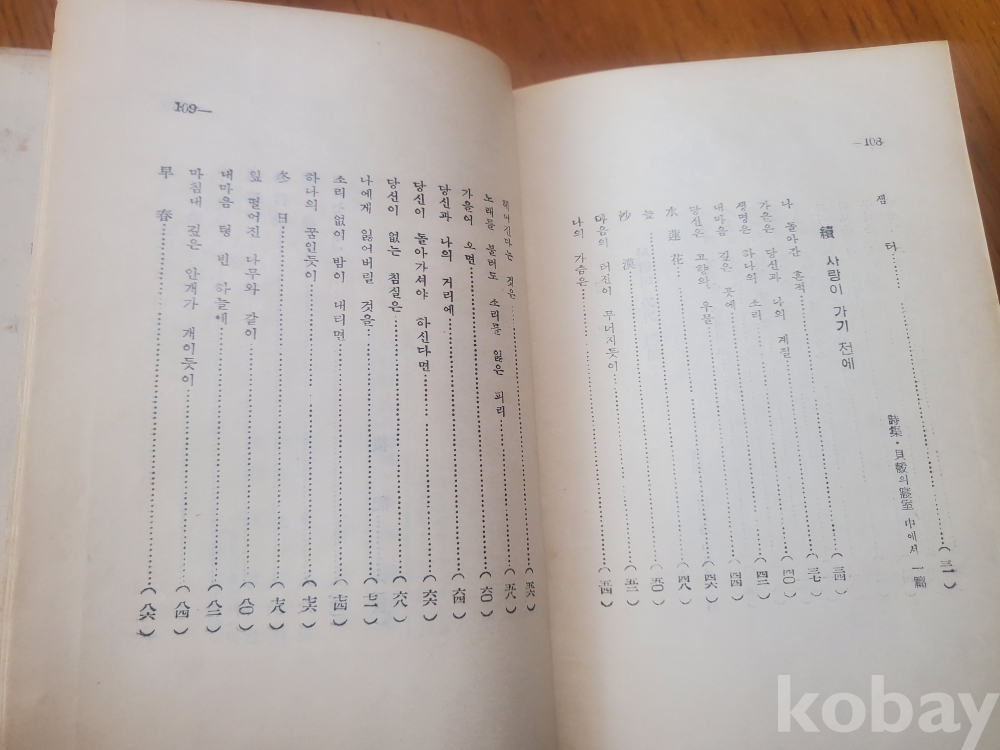 —108
샘 타……(三一)
詩集・貝殼의 寢室 中에서 一篇
續 사랑이 가기 전에
나 돌아간 흔적……(三四)
가을은 당신과 나의 계절……(三七)
생명은 하나의 소리……(四〇)
내마음 깊은 곳에……(四二)
당신은 고향의 우물……(四四)
水 蓮 花……(四六)
눈……(四八)
沙 漠……(五〇)
마음의 터전이 무너지듯이……(五二)
나의 가슴은……(五四)
109—
헤어진다는 것은……(五六)
노래를 불러도 소리를 잃은 피리……(五八)
가을이 오면……(六〇)
당신과 나의 거리에……(六四)
당신이 돌아가셔야 하신다면……(六六)
당신이 없는 침실은……(六八)
나에게 잃어버릴 것을……(七一)
소리 없이 밤이 내리면……(七四)
하나의 꿈인듯이……(七六)
冬 日……(七八)
잎 떨어진 나무와 같이……(八〇)
내마음 텅 빈 하늘에……(八二)
마침내 깊은 안개가 개이듯이……(八四)
早 春……(八六)
kobay